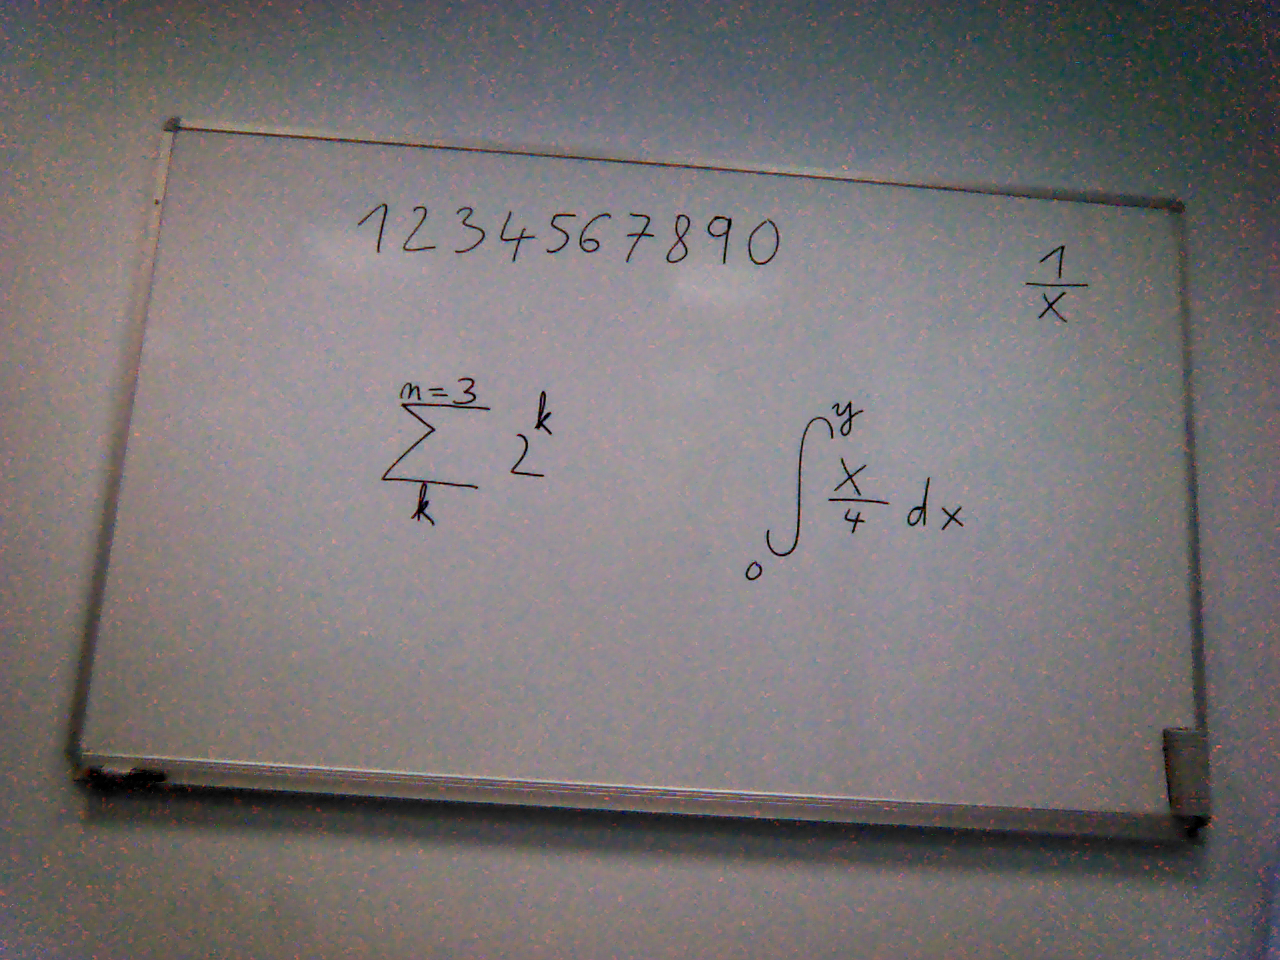 1234567890
1/x
n=3
∑ 2^k
k
∫_0^y x/4 dx